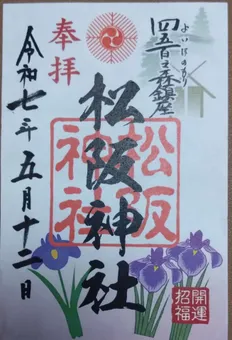 四五百之森鎮座
よいほのもり
奉拝
松阪神社
松阪神社
令和七年五月十二日
開運
招福